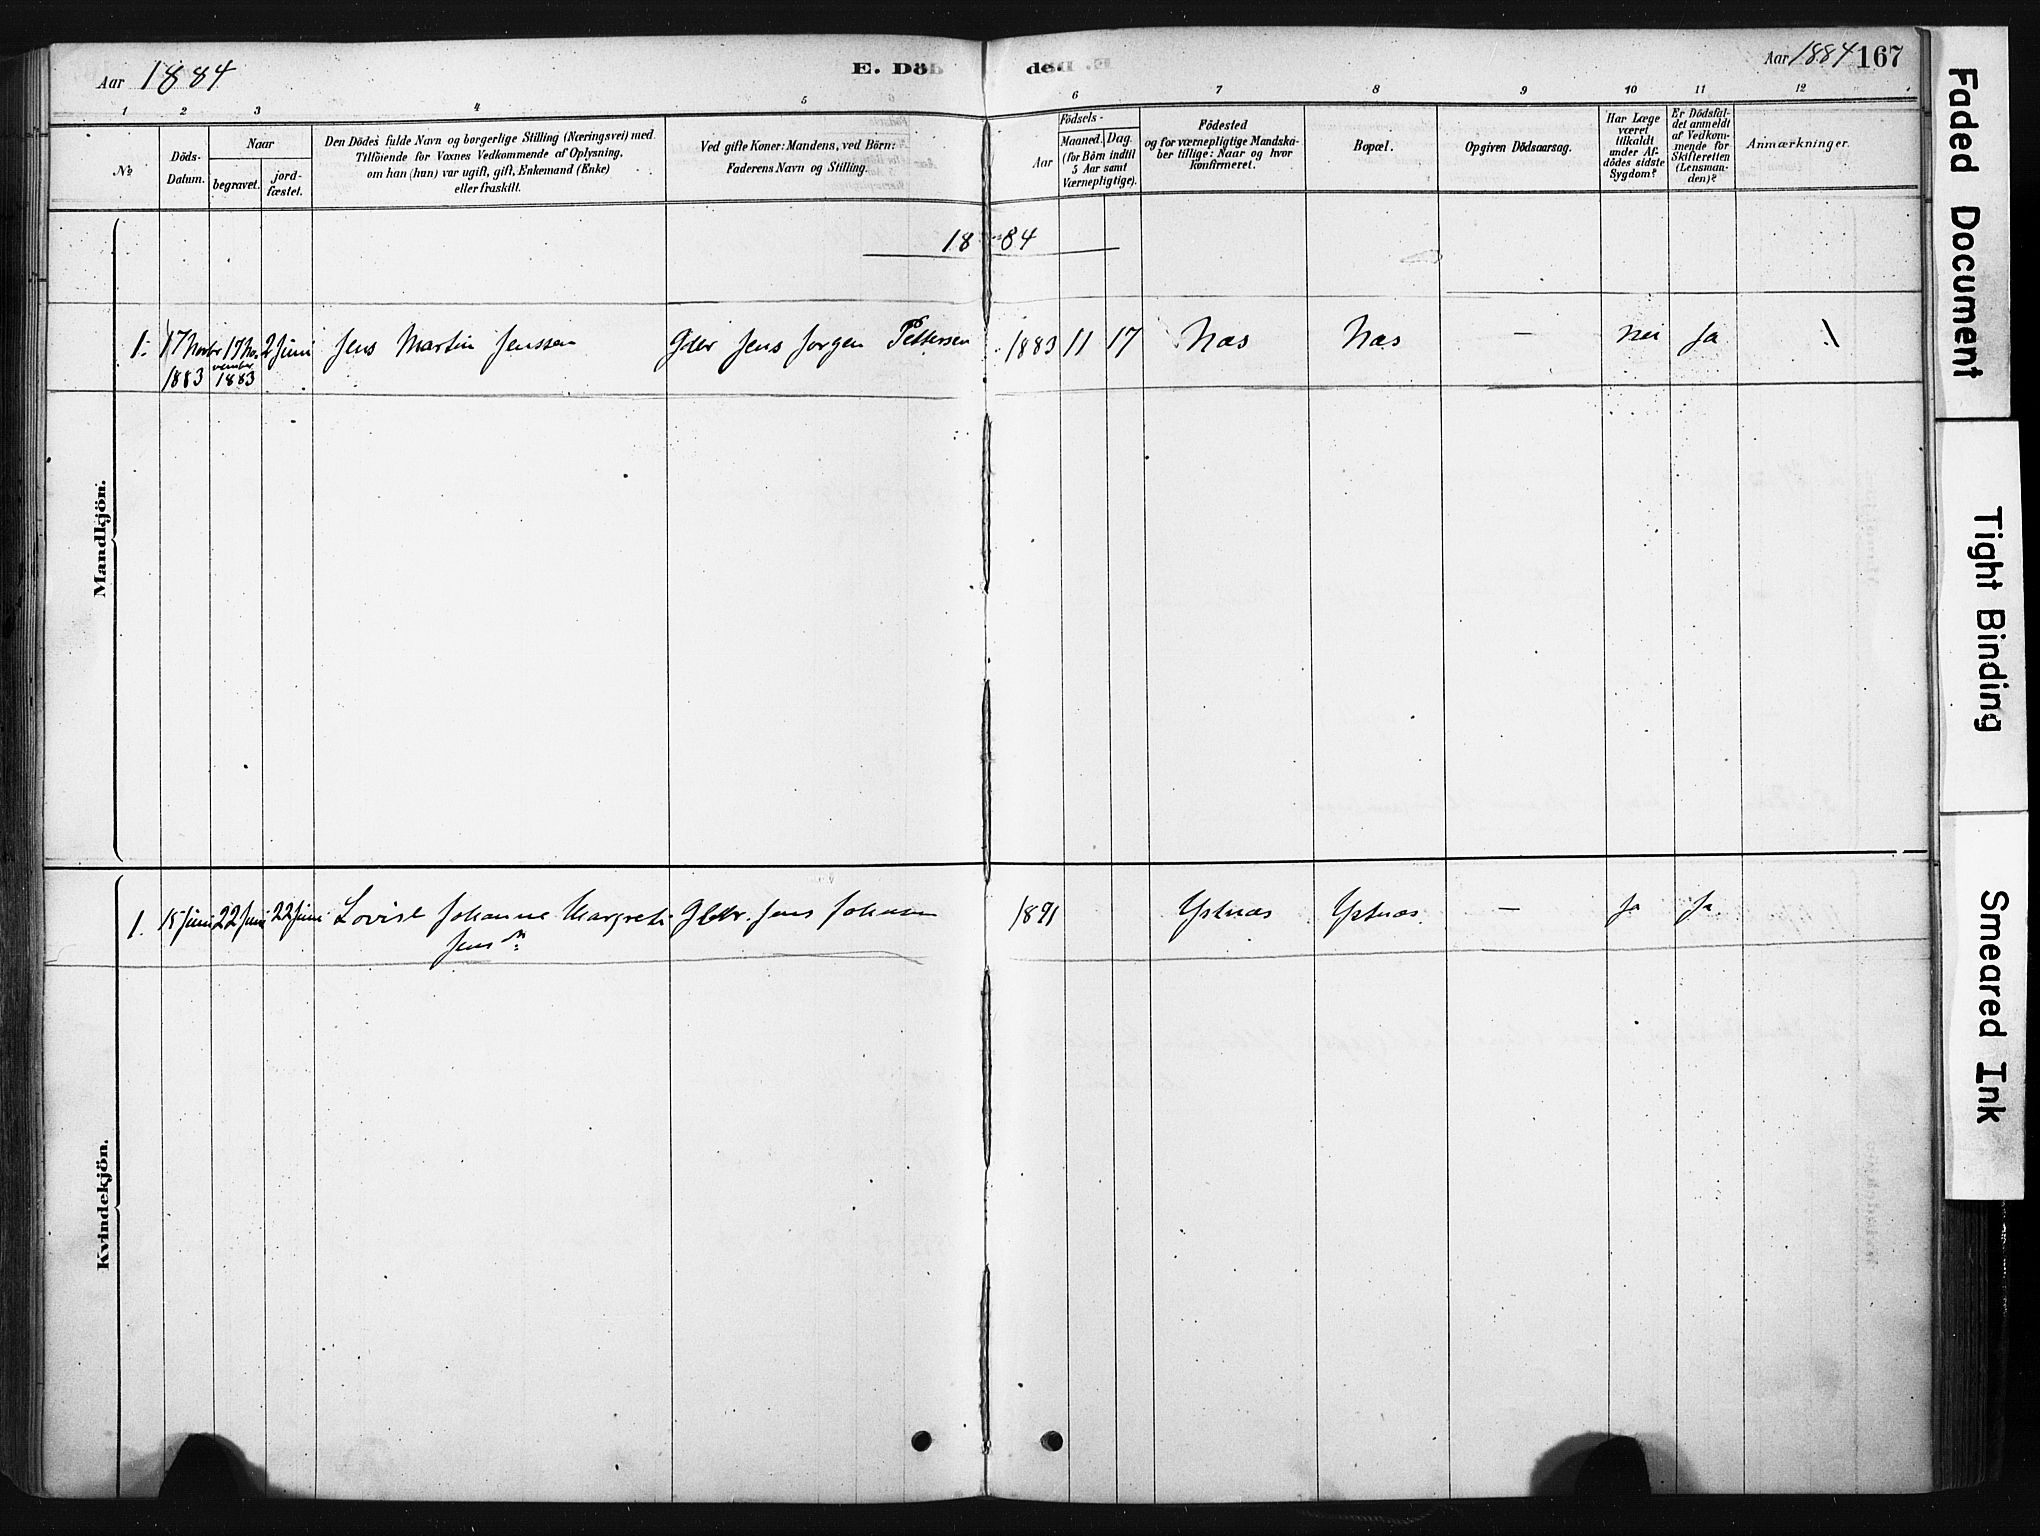 Aar 1884
E. Dö
de.
Aar 1884 167
1 2 3 4 5 6 7 8 9 10 11 12
No
Döds-
Datum.
Naar
begravet.
jord-
fæstet.
Den Dödes fulde Navn og borgerlige Stilling (Næringsvei) med
Tilföiende for Voxnes Vedkommende af Oplysning,
om han (hun) var ugift, gift, Enkemand (Enke)
eller fraskilt.
Ved gifte Koner: Mandens, ved Börn:
Faderens Navn og Stilling.
Födsels-
Aar
Maaned.
Dag.
(for Börn indtil
5 Aar samt
Værnepligtige).
Födested
og for værnepligtige Mandska-
ber tillige: Naar og hvor
konfirmeret.
Bopæl.
Opgiven Dödsaarsag.
Har Læge
været
tilkaldt
under Af-
dödes sidste
Sygdom?
Er Dödsfal-
det anmeldt
af Vedkom-
mende for
Skifteretten
(Lensman-
den)?
Anmærkninger.
1884
Mandkjön.
1. 17 Novbr 17 No- 2 Juni Jens Martin Jenssen Jens Jørgen Pettersen 1883 11 17 Næs Næs — Nei Ja
1883 vember
1883
Kvindekjön.
1. 15 Juni 22 Juni 22 Juni Lovise Johanne Margrete Jens Johnsen Ystnæs Ystnæs — Ja Ja
Jens
Faded Document
Tight Binding
Smeared Ink